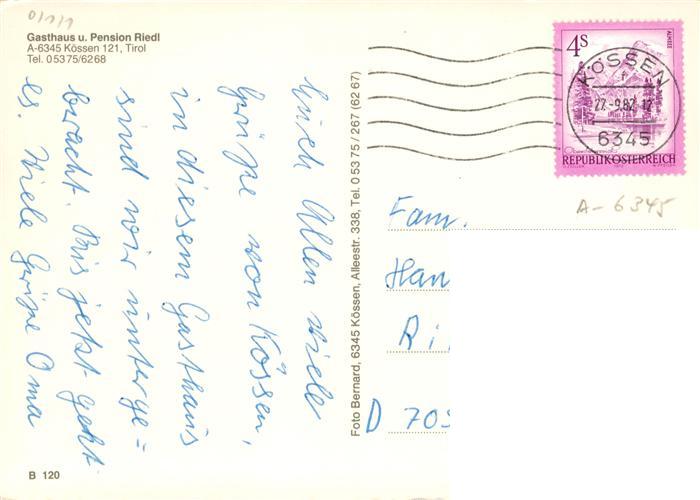 0/1/1
Gasthaus u. Pension Riedl
A-6345 Kössen 121, Tirol
Tel. 05375/6268
Euch Allen viele
Grüße von Kössen,
in diesem Gasthaus
sind wir unterge=
bracht. Bis jetzt geht
es. Viele Grüße Oma
B 120
Foto Bernard, 6345 Kössen, Alleestr. 338, Tel. 0 53 75 / 267 (62 67)
4S
ALMSEE
KÖSSEN
27.-9.82 12
6345
REPUBLIK ÖSTERREICH
A-6345
Fam.
Han
Ri
D 705